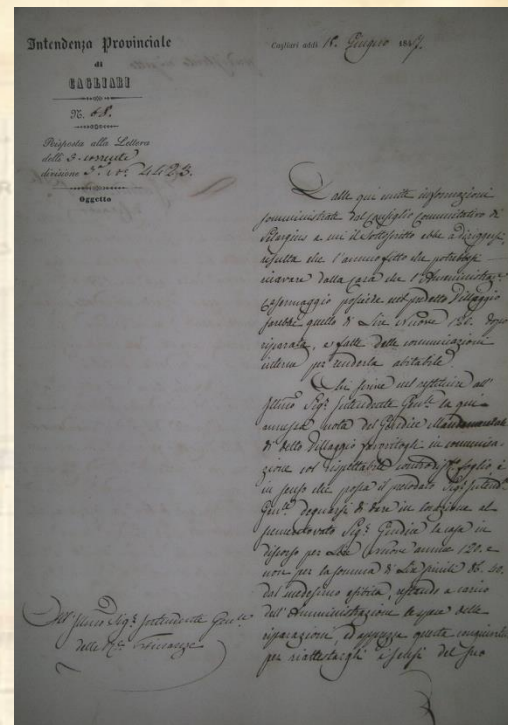 Intendenza Provinciale
di
CAGLIARI
N. 68.
Risposta alla Lettera
delli 3 corrente
divisione 3.ª n.º
Oggetto
Cagliari addì 18 Giugno 1847.
Dalle qui unite informazioni
somministrate dal Consiglio Comunitativo di
a cui il Sottoscritto ebbe a dirigersi,
risulta che l'annuo fitto che potrebbesi
ricavare dalla casa che l'Amministraz.e
possiede nel predetto Villaggio
sarebbe quello di Lire Nuove 120. dopo
riparata, e fatte delle comunicazioni
interne per renderla abitabile.
Chi scrive nel restituire all'
Ill.mo Sig.r Intendente Gen.le la qui
annessa nota del Giudice Mandamentale
di detto Villaggio in comunica-
zione col rispettabile foglio è
in senso che possa il prelodato Sig.r Intend.e
Gen.le degnarsi di dare in locazione al
Sig.r Giudice la casa in
discorso per Lire nuove annue 120. e
non per la somma di Lire simili 40.
dal medesimo offerta, restando a carico
dell'Amministrazione le spese delle
riparazioni, ed
per i sensi del suo
All'Ill.mo Sig.r Intendente Gen.le
delle R.e Finanze